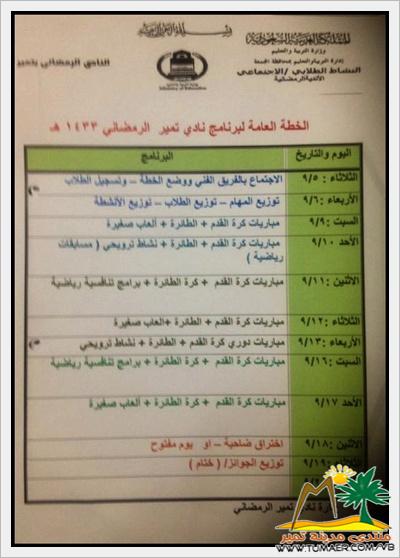 المملكة العربية السعودية
وزارة التربية والتعليم
إدارة التربية والتعليم بمحافظة المجمعة
النشاط الطلابي / الاجتماعي
الأندية الرمضانية
Ministry of Education
النادي الرمضاني بتمير
الخطة العامة لبرنامج نادي تمير الرمضاني ١٤٣٣ هـ
اليوم والتاريخ البرنامج
الثلاثاء : ٩/٥ الاجتماع بالفريق الفني ووضع الخطة – وتسجيل الطلاب
الأربعاء : ٩/٦ توزيع المهام – توزيع الطلاب – توزيع الأنشطة
السبت : ٩/٩ مباريات كرة القدم + الطائرة + ألعاب صغيرة
الأحد ٩/١٠ مباريات كرة القدم + الطائرة + نشاط ترويحي ( مسابقات
رياضية )
الاثنين : ٩/١١ مباريات كرة القدم + كرة الطائرة + برامج تنافسية رياضية
الثلاثاء : ٩/١٢ مباريات كرة القدم + الطائرة +ألعاب صغيرة
الأربعاء : ٩/١٣ مباريات دوري كرة القدم + الطائرة + نشاط ترويحي
السبت : ٩/١٦ مباريات كرة القدم + كرة الطائرة + برامج تنافسية رياضية
الأحد ٩/١٧ مباريات كرة القدم + كرة الطائرة + ألعاب صغيرة
الاثنين : ٩/١٨ اختراق ضاحية – او يوم مفتوح
الثلاثاء : ٩/١٩ توزيع الجوائز/ ( ختام )
نادي تمير الرمضاني
منتدى مدينة تمير
WWW.TUMAER.COM/VB